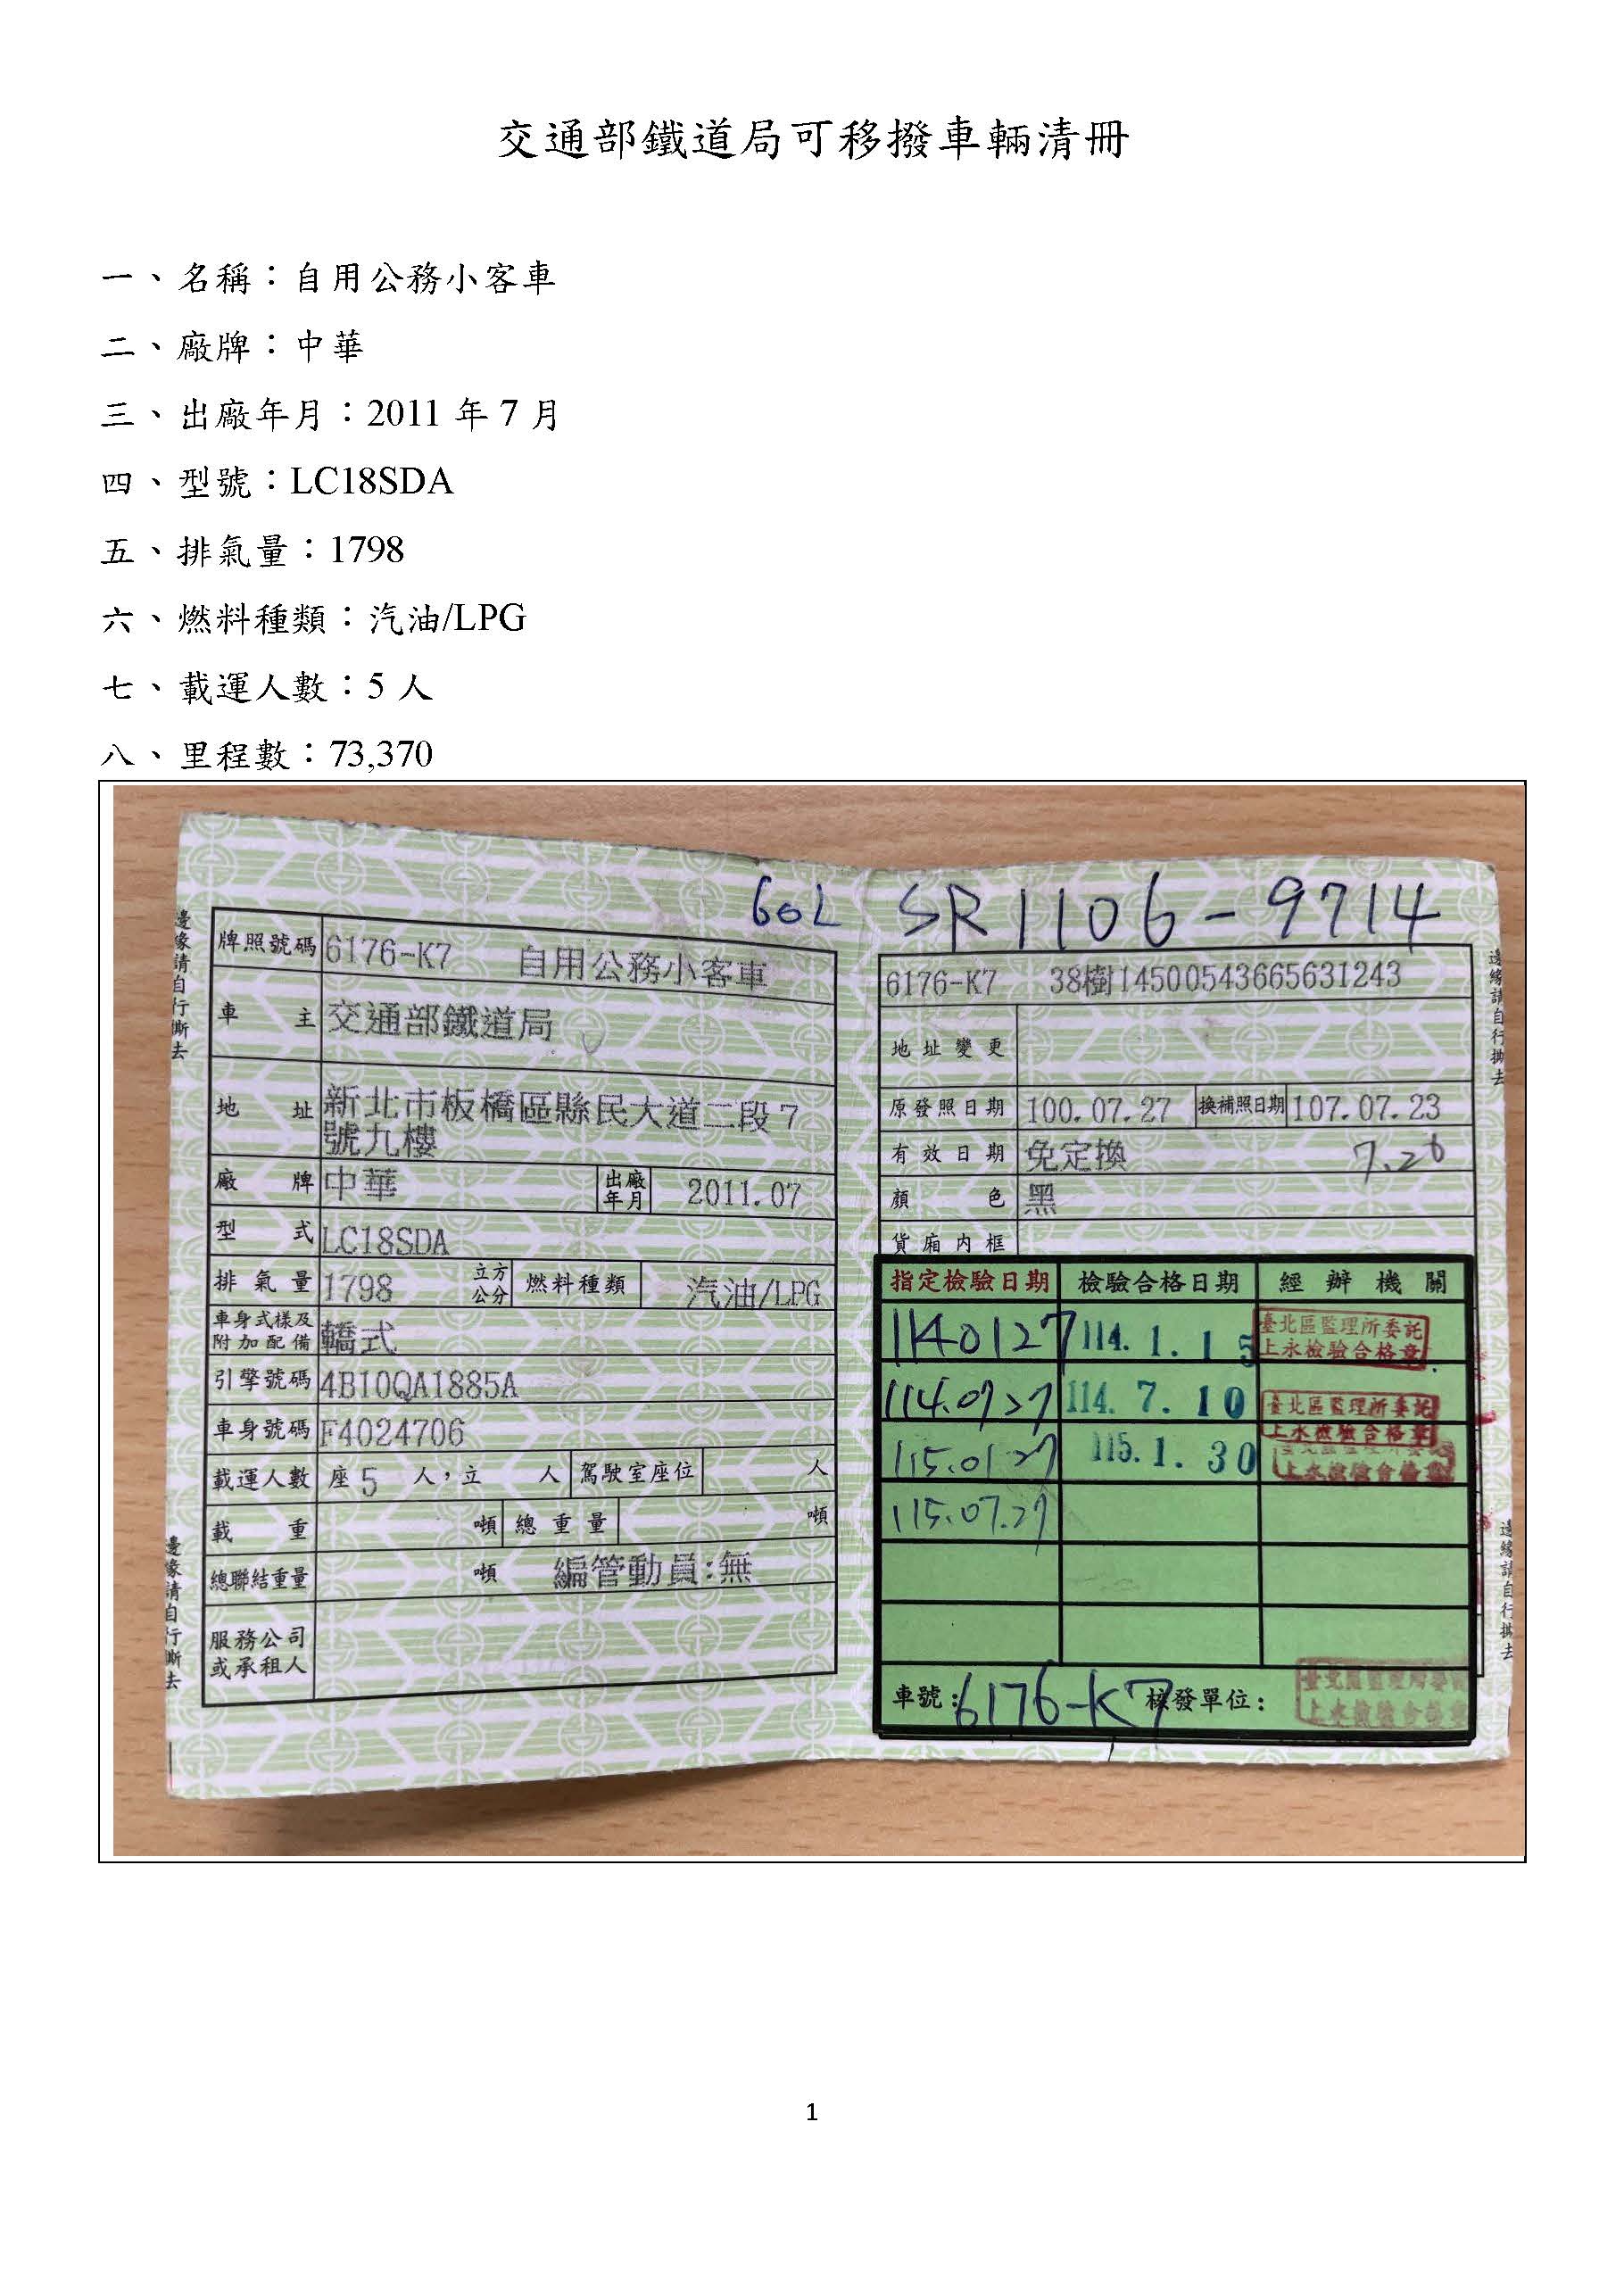 交通部鐵道局可移撥車輛清冊
一、名稱：自用公務小客車
二、廠牌：中華
三、出廠年月：2011 年 7 月
四、型號：LC18SDA
五、排氣量：1798
六、燃料種類：汽油/LPG
七、載運人數：5 人
八、里程數：73,370
60L SR1106-9714
邊緣請自行撕去
牌照號碼 6176-K7 自用公務小客車
車主 交通部鐵道局
地址 新北市板橋區縣民大道二段7
號九樓
廠牌 中華 出廠年月 2011.07
型式 LC18SDA
排氣量 1798 立方公分 燃料種類 汽油/LPG
車身式樣及附加配備 轎式
引擎號碼 4B10QA1885A
車身號碼 F4024706
載運人數 座 5 人，立 人 駕駛室座位 人
載重 噸 總重量 噸
總聯結重量 噸 編管動員:無
服務公司或承租人
邊緣請自行撕去
6176-K7 38樹14500543665631243
邊緣請自行撕去
地址變更
原發照日期 100.07.27 換補照日期 107.07.23
有效日期 免定換 7.26
顏色 黑
貨廂內框
指定檢驗日期 檢驗合格日期 經辦機關
1140127 114.1.15 臺北區監理所委託
上永檢驗合格章
114.0727 114.7.10 臺北區監理所委託
上永檢驗合格章
115.0127 115.1.30
115.07.27
車號：6176-K7 核發單位：
邊緣請自行撕去
1